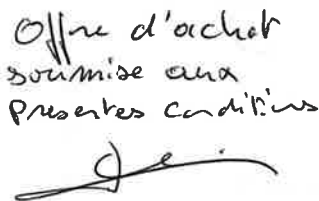 Offre d'achat
soumise aux
présentes conditions